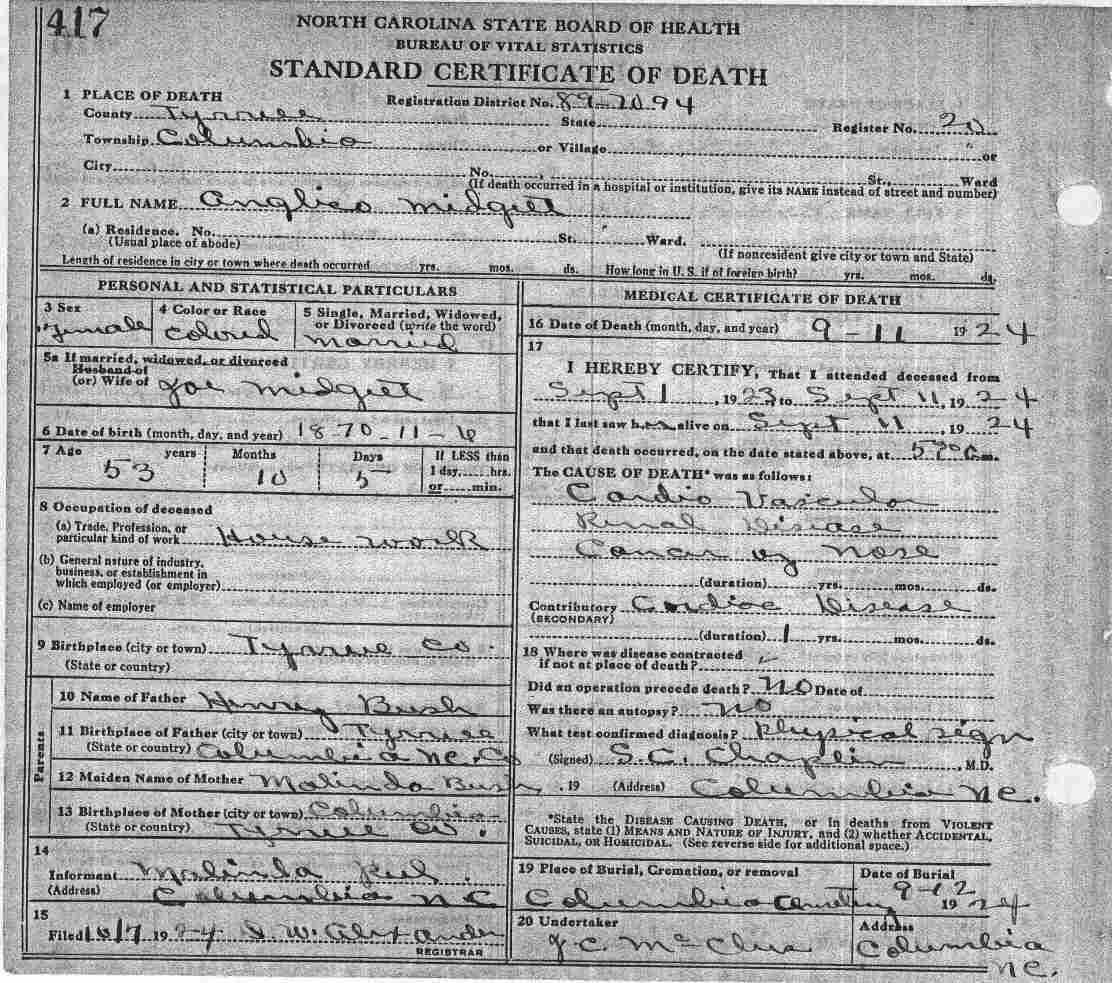 417
NORTH CAROLINA STATE BOARD OF HEALTH
BUREAU OF VITAL STATISTICS
STANDARD CERTIFICATE OF DEATH
1 PLACE OF DEATH
Registration District No. 89-20 94
County Tyrrell State Register No. 20
Township Columbia or Village or
City No. , St., Ward
(If death occurred in a hospital or institution, give its NAME instead of street and number)
2 FULL NAME Anglico Midgett
(a) Residence. No. St. Ward.
(Usual place of abode) (If nonresident give city or town and State)
Length of residence in city or town where death occurred yrs. mos. ds. How long in U. S. if of foreign birth? yrs. mos. ds.
PERSONAL AND STATISTICAL PARTICULARS
3 Sex
female
4 Color or Race
Colored
5 Single, Married, Widowed, or Divorced (write the word)
Married
5a If married, widowed, or divorced
Husband of
(or) Wife of Joe Midgett
6 Date of birth (month, day, and year) 1870-11-6
7 Age years Months Days If LESS than
53 10 5 1 day, hrs.
or min.
8 Occupation of deceased
(a) Trade, Profession, or
particular kind of work House work
(b) General nature of industry,
business, or establishment in
which employed (or employer)
(c) Name of employer
9 Birthplace (city or town) Tyrrell Co.
(State or country)
Parents.
10 Name of Father Henry Bush
11 Birthplace of Father (city or town) Tyrrell
(State or country) Columbia NC. Co
12 Maiden Name of Mother Malinda Bush
13 Birthplace of Mother (city or town) Columbia
(State or country) Tyrrell Co.
14
Informant Malinda
(Address) Columbia N C
15
Filed 10/7 1924 W. Alexander
REGISTRAR
MEDICAL CERTIFICATE OF DEATH
16 Date of Death (month, day, and year) 9-11 1924
17
I HEREBY CERTIFY, That I attended deceased from
Sept 1, 1923 to Sept 11, 1924
that I last saw her alive on Sept 11, 1924
and that death occurred, on the date stated above, at 5 m.
The CAUSE OF DEATH* was as follows:
Cardio Vascular
Renal Disease
Cancer of nose
(duration) yrs. mos. ds.
Contributory Cardiac Disease
(SECONDARY)
(duration) 1 yrs. mos. ds.
18 Where was disease contracted
if not at place of death?
Did an operation precede death? NO Date of
Was there an autopsy? NO
What test confirmed diagnosis? Physical sign
(Signed) S. C. Chaplin, M.D.
, 19 (Address) Columbia NC.
*State the DISEASE CAUSING DEATH, or in deaths from VIOLENT
CAUSES, state (1) MEANS AND NATURE OF INJURY, and (2) whether ACCIDENTAL,
SUICIDAL, OR HOMICIDAL. (See reverse side for additional space.)
19 Place of Burial, Cremation, or removal
Columbia Cemetery
Date of Burial
9-12 1924
20 Undertaker
J. C. McClees
Address
Columbia
NC.